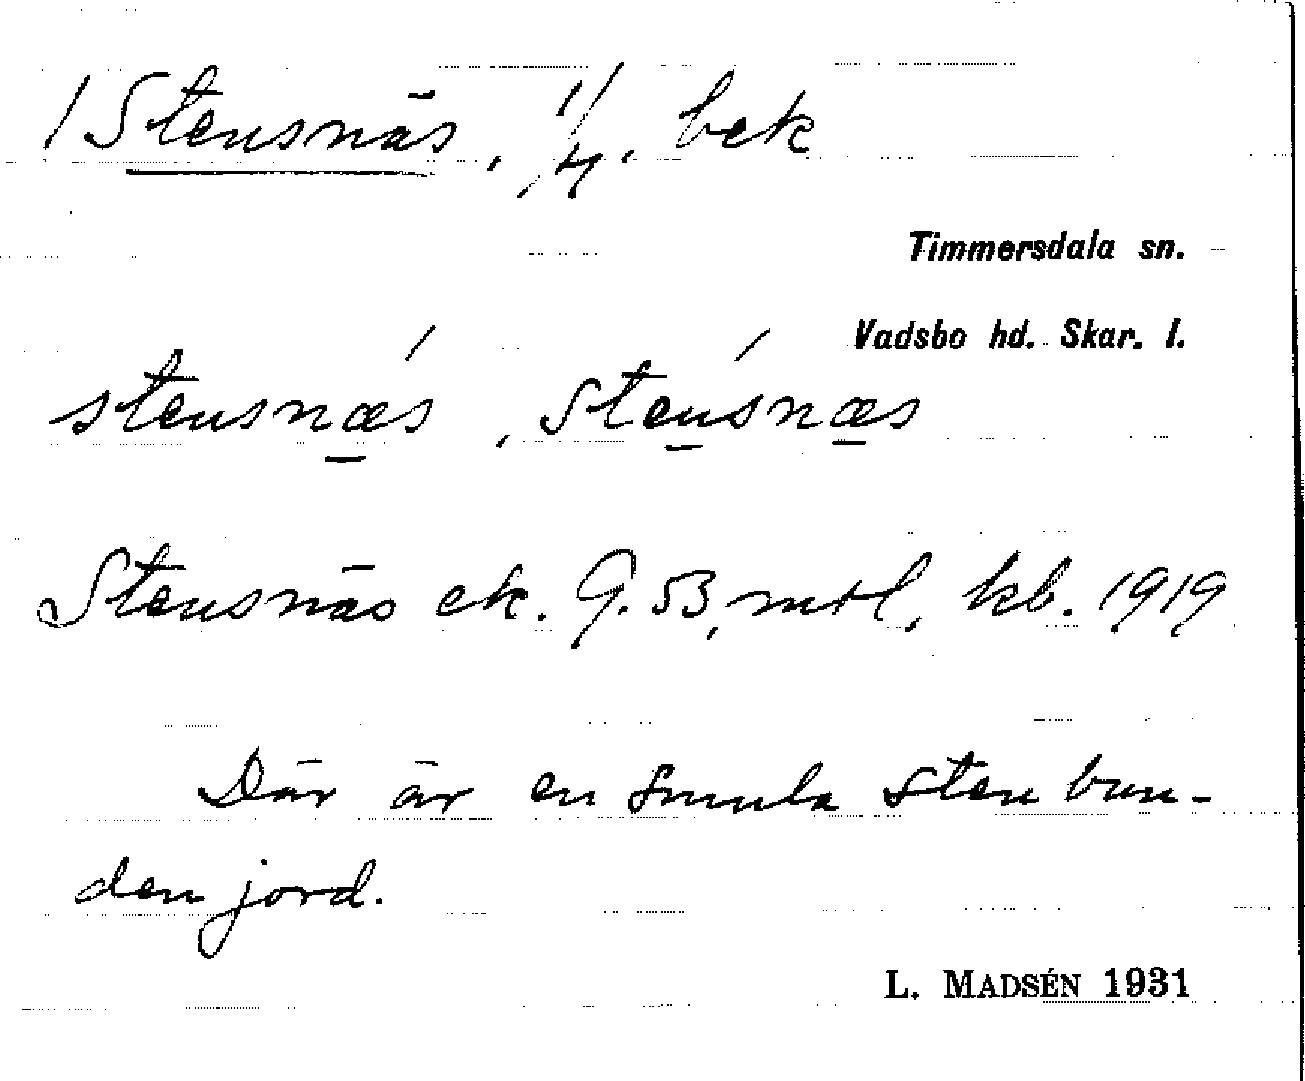 / Stensnäs, 1/4. bek
Timmersdala sn.
Vadsbo hd. Skar. l.
stensnæ̱s, ste̱nsnæ̱s
Stensnäs ek. G. 53, mtl, kb. 1919
Där är en smula sten bun-
den jord.
L. MADSÉN 1931